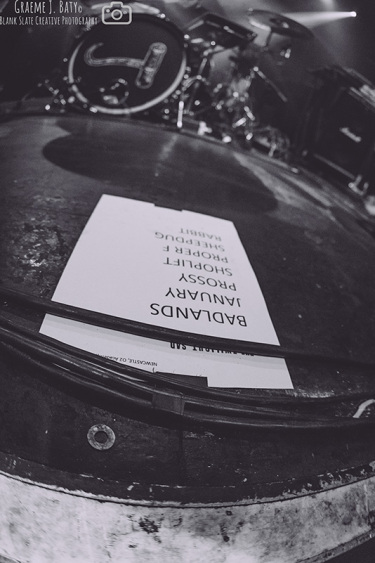 Graeme J. Baty©
Blank Slate Creative Photography
NEWCASTLE, O2
TWILIGHT SAD
BADLANDS
JANUARY
PROSSY
SHOPLIFT
PROPER F
SHEEPDUG
RABBIT